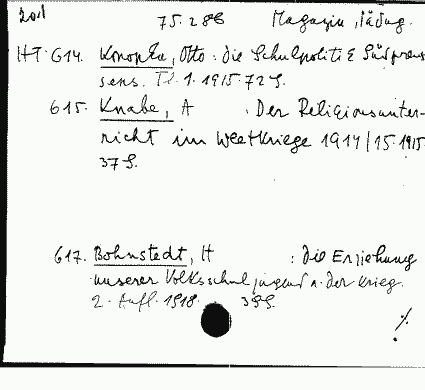 75.288 Magazin, Pädag.
HT 614. Konopka, Otto: die Schulpolitik Südpreus
sens. Tl. 1. 1915. 72 S.
615. Knabe, A. Der Religionsunter-
richt im Weltkriege 1914/15. 1915.
37 S.
617. Bohnstedt, H : die Erziehung
unserer Volksschuljugend u. der Krieg.
2. Aufl. 1918. 39 S.